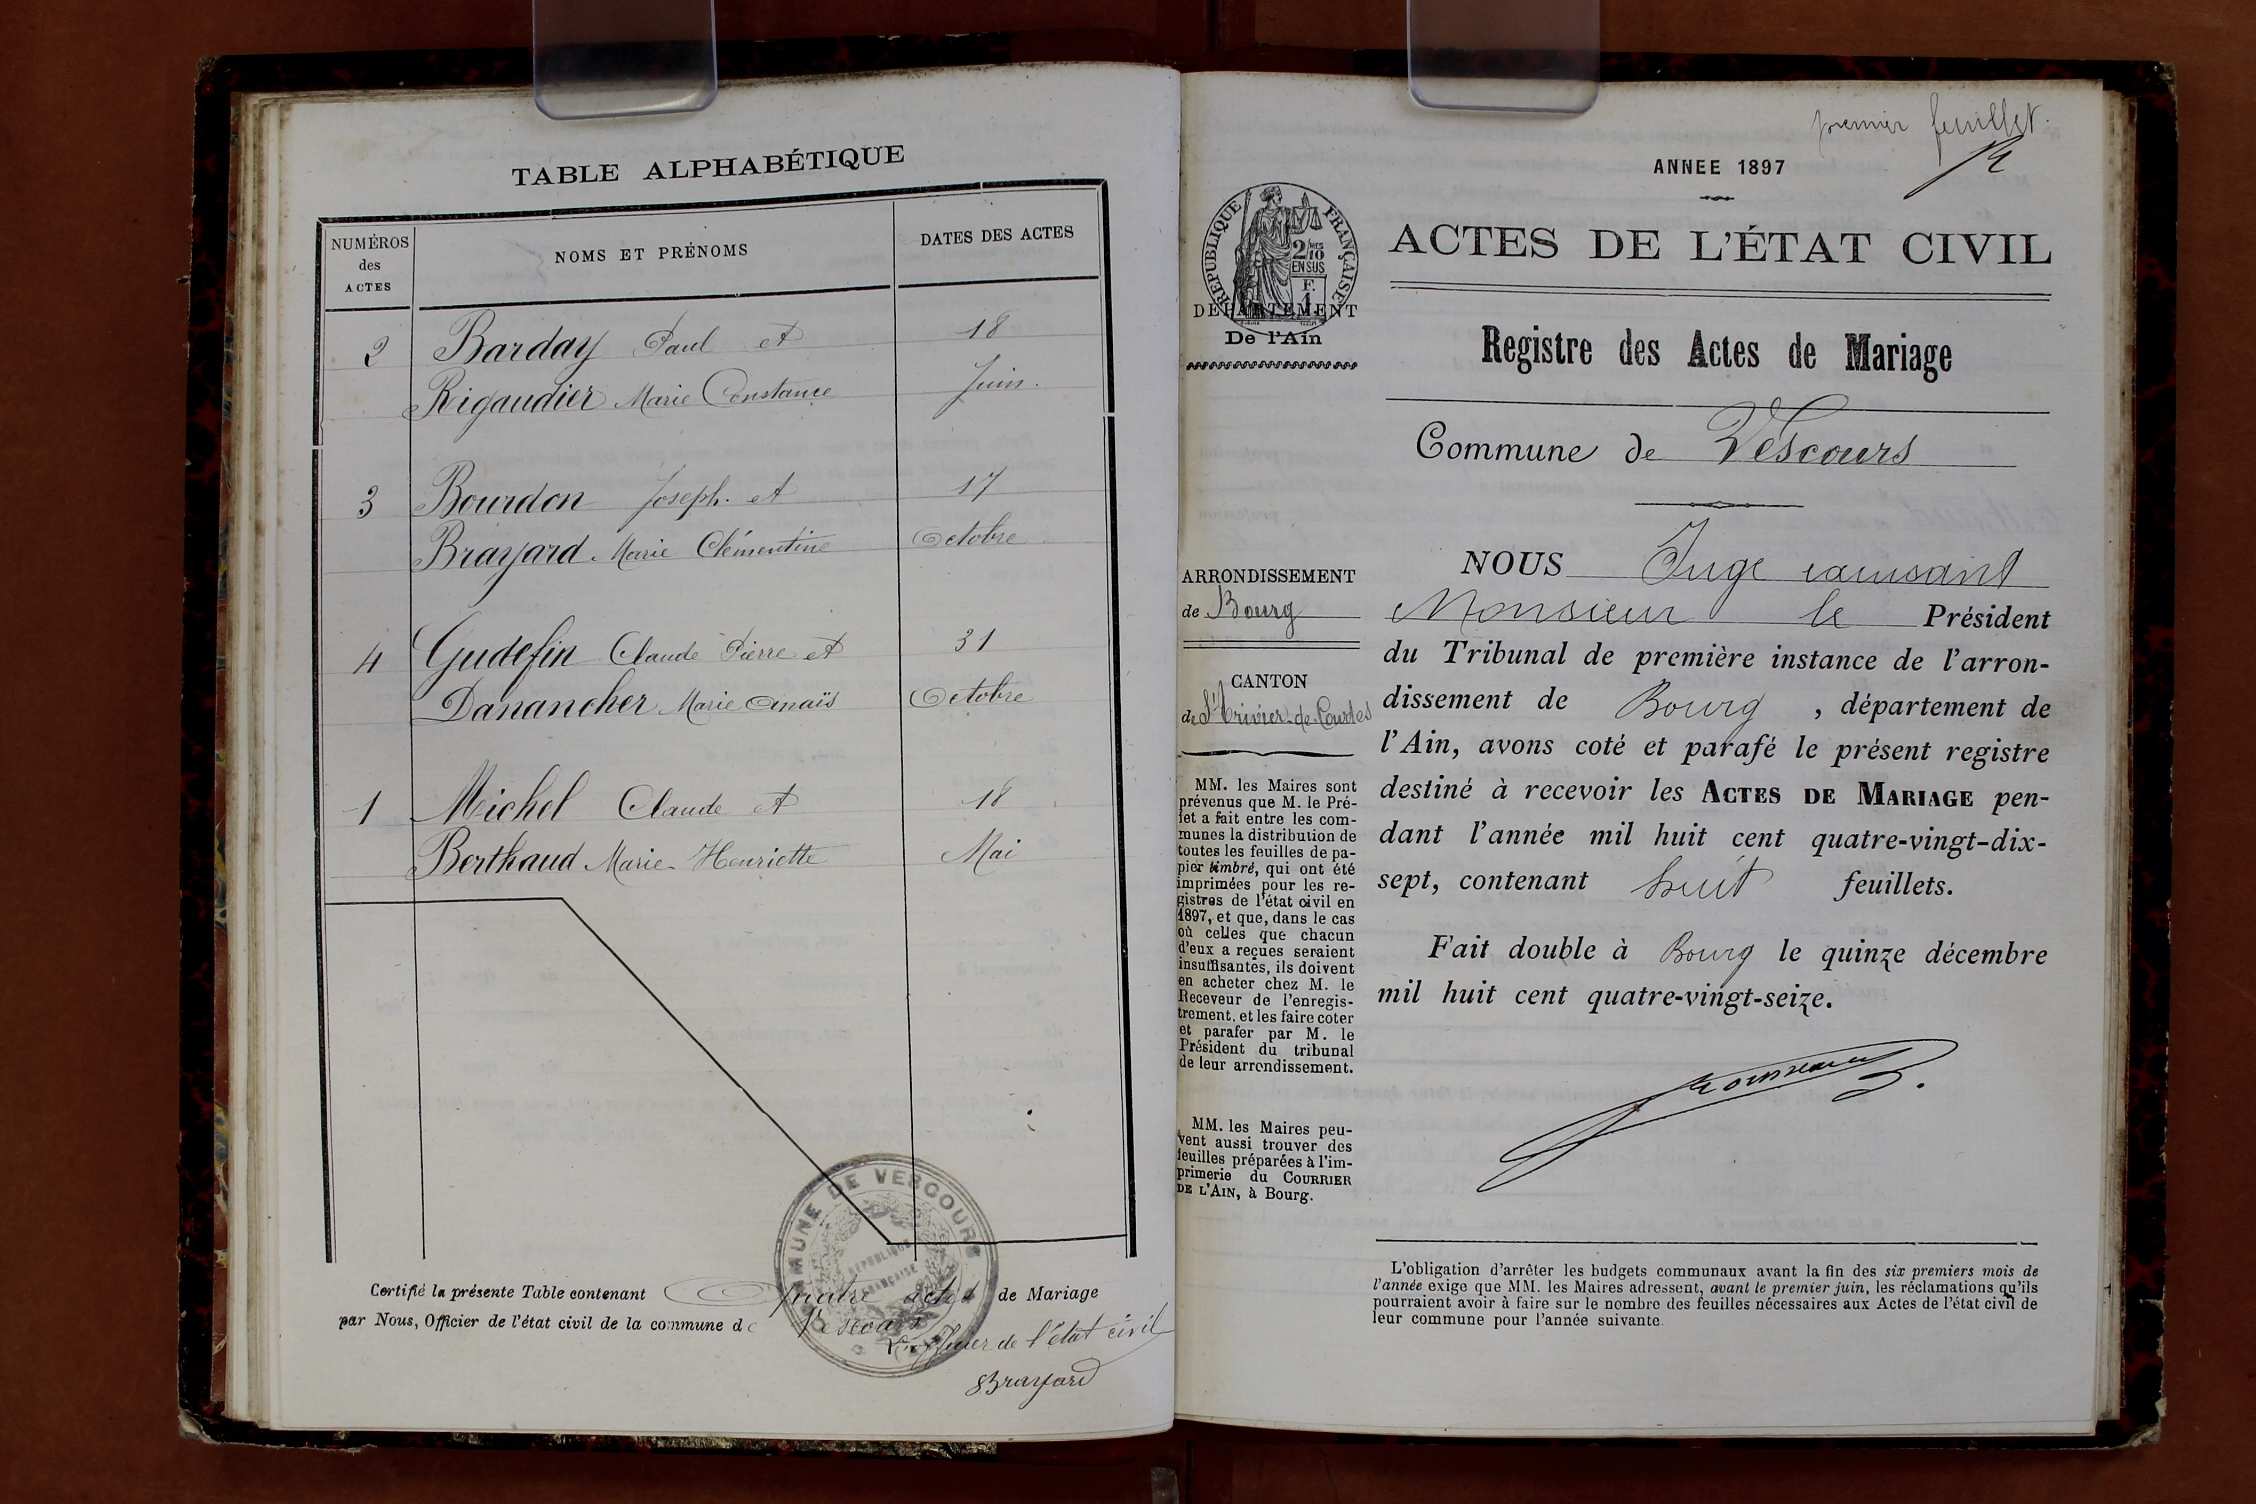 TABLE ALPHABÉTIQUE
NUMÉROS
des
ACTES
NOMS ET PRÉNOMS
DATES DES ACTES
2 Barday Paul et 18
Rigaudier Marie Constance Juin.
3 Bourdon Joseph. et 17
Brayard Marie Clémentine Octobre
4 Gudefin Claude Pierre et 31
Danancher Marie Anaïs Octobre
1 Michel Claude et 18
Berthaud Marie-Henriette Mai
COMMUNE DE VERCOURS
RÉPUBLIQUE
FRANÇAISE
Certifié la présente Table contenant quatre actes de Mariage
par Nous, Officier de l'état civil de la commune de Vescours
L'officier de l'état civil
Brayard
premier feuillet.
ANNEE 1897
RÉPUBLIQUE FRANÇAISE
2/10 EN SUS
F. 1
DÉPARTEMENT
De l'Ain
ACTES DE L'ÉTAT CIVIL
Registre des Actes de Mariage
Commune de Vescours
ARRONDISSEMENT
de Bourg
CANTON
de St Trivier-de-Courtes
MM. les Maires sont
prévenus que M. le Pré-
fet a fait entre les com-
munes la distribution de
toutes les feuilles de pa-
pier timbré, qui ont été
imprimées pour les re-
gistres de l'état civil en
1897, et que, dans le cas
où celles que chacun
d'eux a reçues seraient
insuffisantes, ils doivent
en acheter chez M. le
Receveur de l'enregis-
trement, et les faire coter
et parafer par M. le
Président du tribunal
de leur arrondissement.
MM. les Maires peu-
vent aussi trouver des
feuilles préparées à l'im-
primerie du COURRIER
DE L'AIN, à Bourg.
NOUS Juge
Monsieur le Président
du Tribunal de première instance de l'arron-
dissement de Bourg, département de
l'Ain, avons coté et parafé le présent registre
destiné à recevoir les ACTES DE MARIAGE pen-
dant l'année mil huit cent quatre-vingt-dix-
sept, contenant huit feuillets.
Fait double à Bourg le quinze décembre
mil huit cent quatre-vingt-seize.
L'obligation d'arrêter les budgets communaux avant la fin des six premiers mois de
l'année exige que MM. les Maires adressent, avant le premier juin, les réclamations qu'ils
pourraient avoir à faire sur le nombre des feuilles nécessaires aux Actes de l'état civil de
leur commune pour l'année suivante.